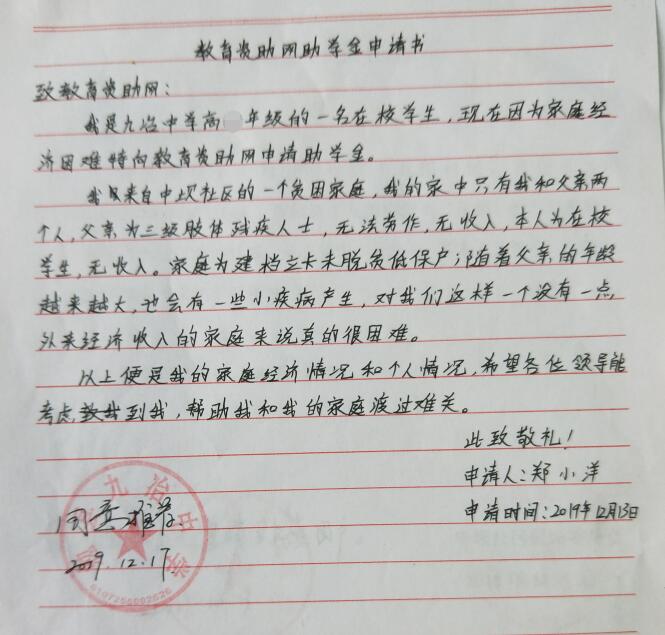 教育资助网助学金申请书
致教育资助网：
我是九冶中学高年级的一名在校学生，现在因为家庭经
济困难特向教育资助网申请助学金。
我来自中坝社区的一个贫困家庭，我的家中只有我和父亲两
个人，父亲为三级肢体残疾人士，无法劳作，无收入，本人为在校
学生，无收入。家庭为建档立卡未脱贫低保户；随着父亲的年龄
越来越大，也会有一些小疾病产生，对我们这样一个没有一点
外来经济收入的家庭来说真的很困难。
以上便是我的家庭经济情况和个人情况，希望各位领导能
考虑到我，帮助我和我的家庭渡过难关。
此致敬礼！
申请人：郑小洋
申请时间：2019年12月13日
九冶中学
同意推荐
2019.12.17